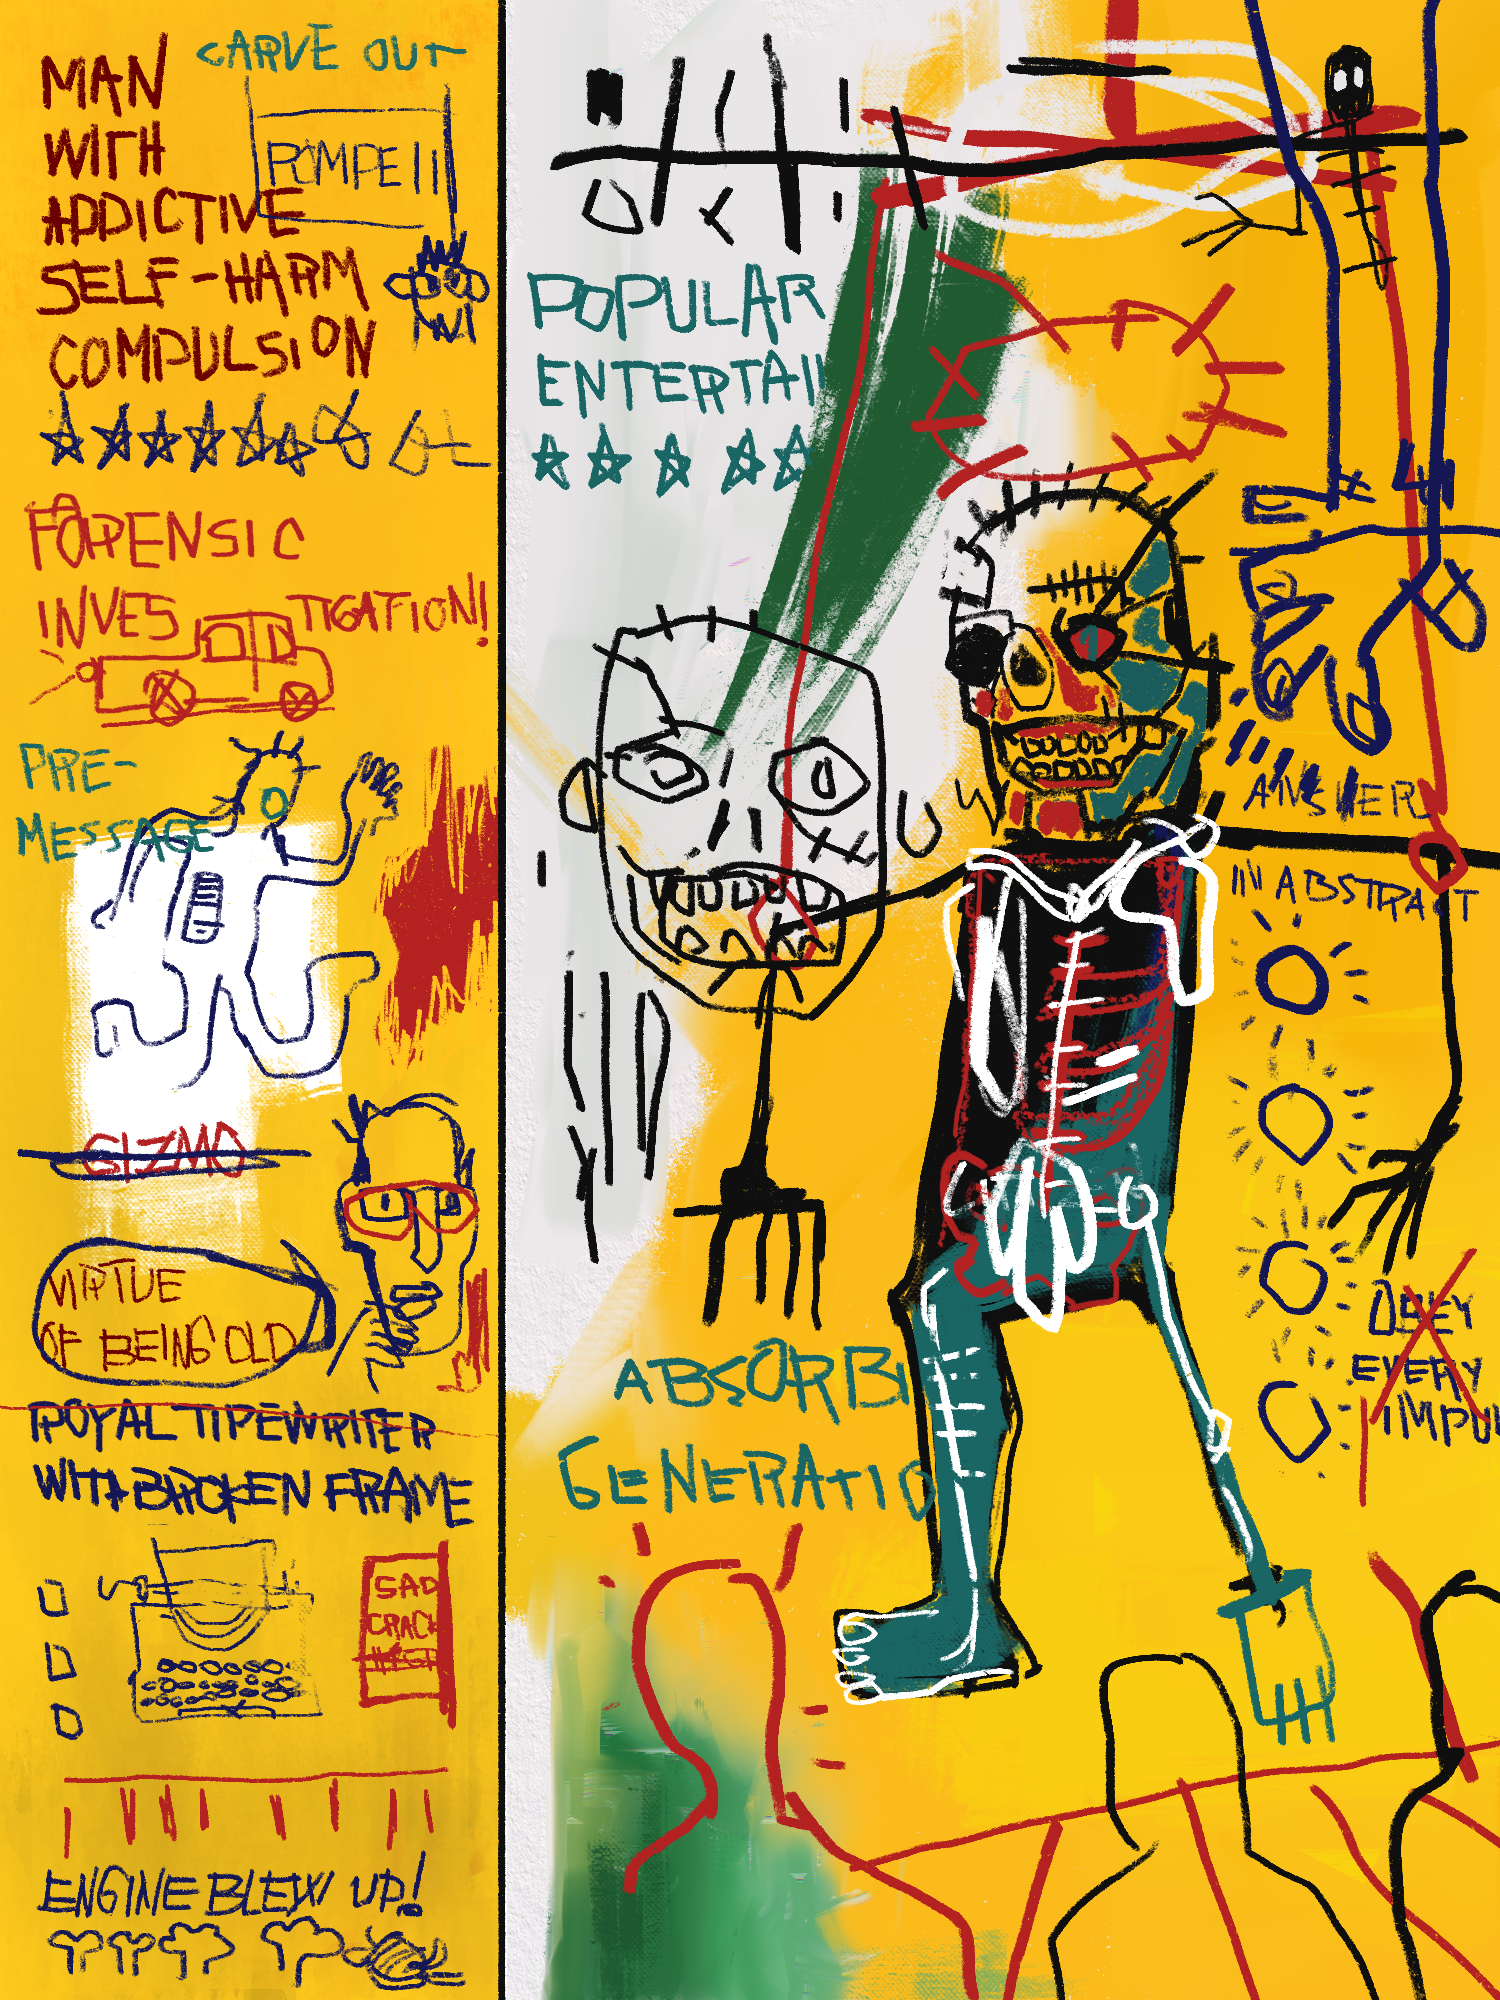 CARVE OUT
MAN
WITH
ADDICTIVE
SELF-HARM
COMPULSION
POMPEII
FORENSIC
INVESTIGATION!
PRE-
MESSAGE
GIZMO
VIRTUE
OF BEING OLD
ROYAL TIPEWRITER
WITH BROKEN FRAME
SAD
CRACK
ENGINE BLEW UP!
POPULAR
ENTERTAI
ANSWER
IN ABSTRACT
OBEY
EVERY
IMPUL
ABSORB
GENERATIO